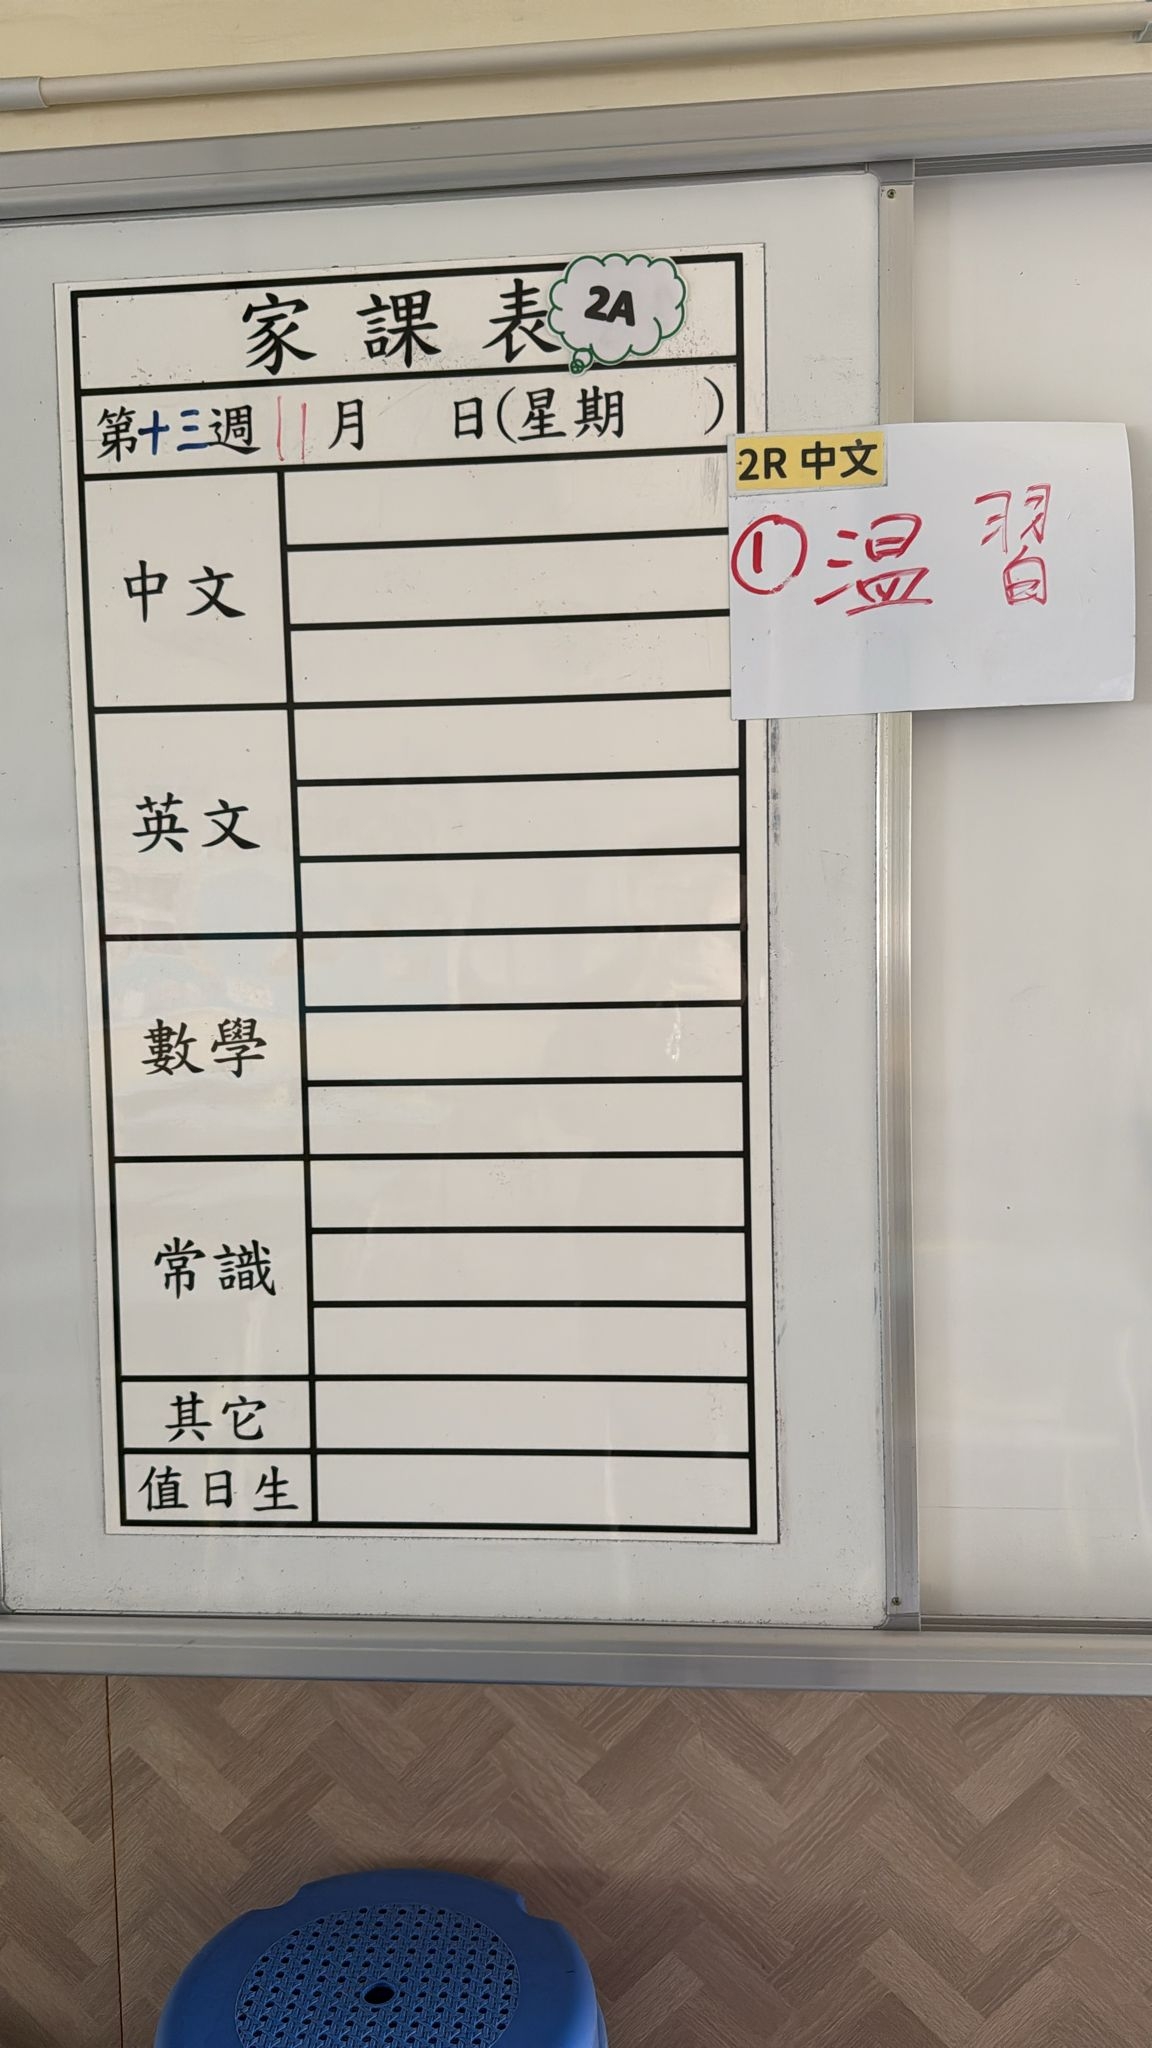 家課表 2A
第十三週 11月 日(星期 )
2R 中文
①温習
中文
英文
數學
常識
其它
值日生